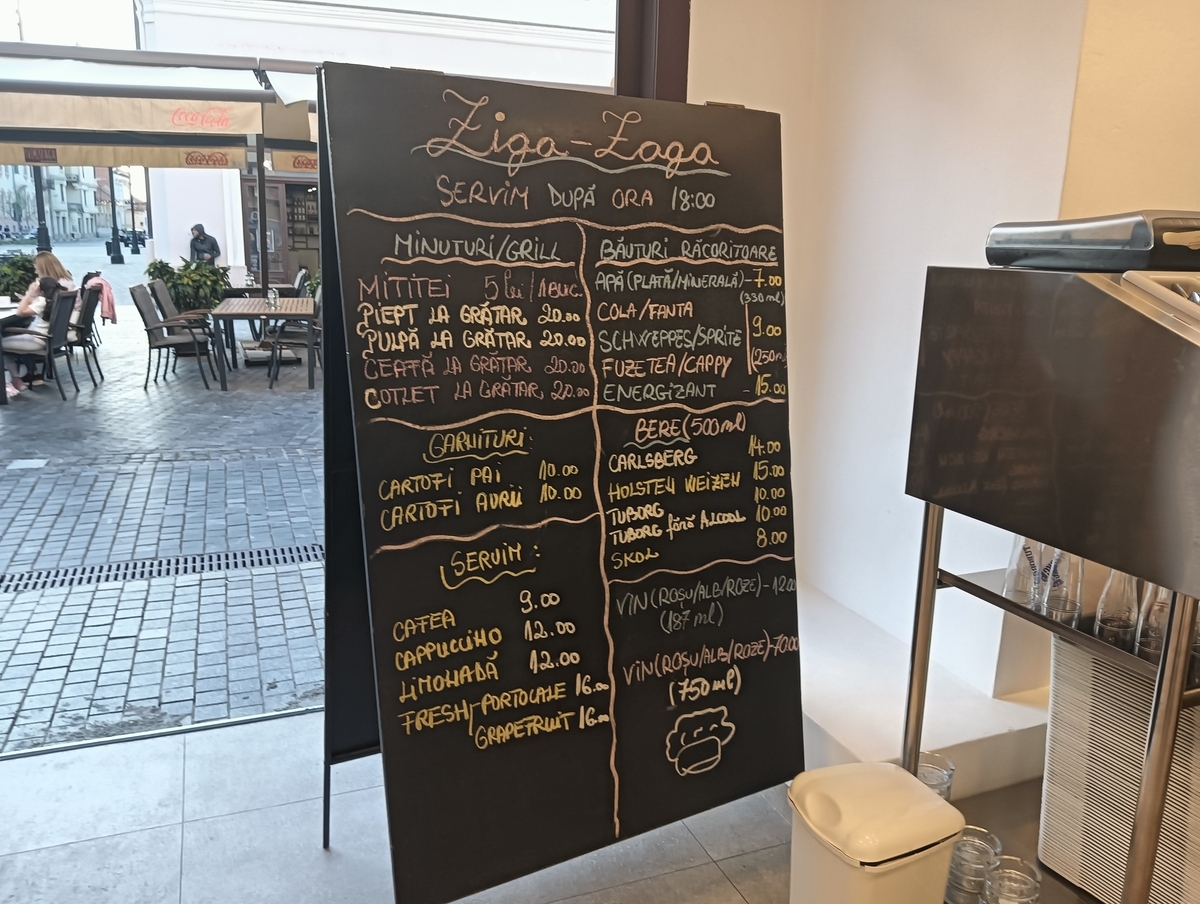 Coca-Cola
Ziga-Zaga
SERVIM DUPĂ ORA 18:00
MINUTURI/GRILL
MITITEI 5 lei/1BUC
PIEPT LA GRĂTAR 20.00
PULPĂ LA GRĂTAR 20.00
CEAFĂ LA GRĂTAR 20.00
COTLET LA GRĂTAR 20.00
GARNITURI:
CARTOFI PAI 10.00
CARTOFI AURII 10.00
SERVIM:
CAFEA 9.00
CAPPUCCINO 12.00
LIMONADĂ 12.00
FRESH-PORTOCALE 16.00
GRAPEFRUIT 16.00
BĂUTURI RĂCORITOARE
APĂ (PLATĂ/MINERALĂ) - 7.00
(330 ml)
COLA/FANTA
SCHWEPPES/SPRITE 9.00
FUZETEA/CAPPY (250m
ENERGIZANT - 15.00
BERE (500 ml)
CARLSBERG 14.00
HOLSTEN WEIZEN 15.00
TUBORG 10.00
TUBORG fără ALCOOL 10.00
SKOL 8.00
VIN (ROȘU/ALB/ROZE) - 12.00
(187 ml)
VIN (ROȘU/ALB/ROZE) - 70.00
(750 ml)